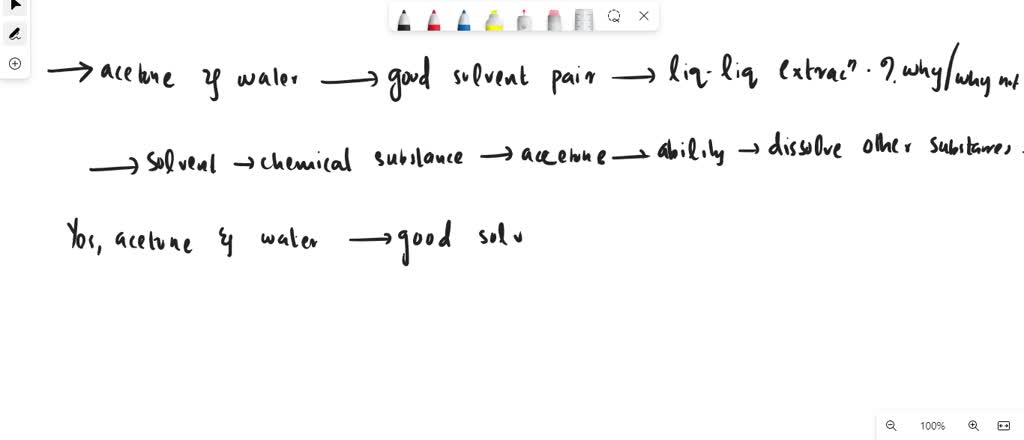 → acetone & water → good solvent pair → liq-liq extracⁿ. ?. why/why not
→ solvent → chemical substance → acetone → ability → dissolve other substances.
Yes, acetone & water → good solv
100%